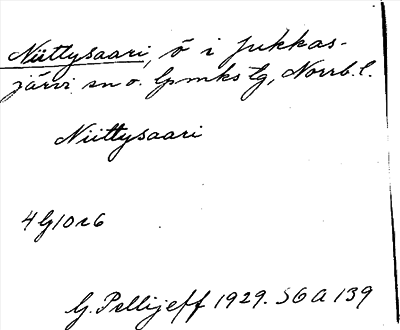 Niittysaari, ö i Jukkas-
järvi sn o. lpmks tg, Norrb. l.
Niittysaari
4 G 10 r 6
G. Pellijeff 1929. SGA 139